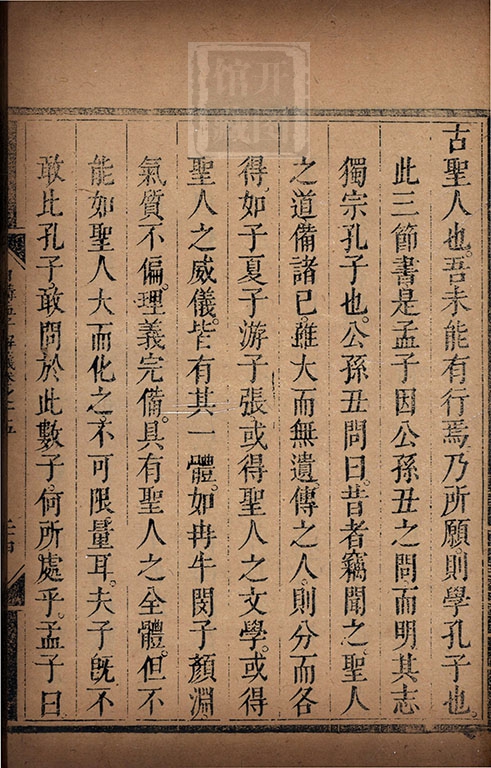 古聖人也。吾未能有行焉乃所願。則學孔子也。
此三節書是孟子因公孫丑之問而明其志
獨宗孔子也。公孫丑問曰。昔者竊聞之。聖人
之道備諸己。雖大而無遺。傳之人。則分而各
得。如子夏子游子張。或得聖人之文學。或得
聖人之威儀。皆有其一體。如冉牛閔子顏淵。
氣質不偏。理義完備。具有聖人之全體。但不
能如聖人大而化之。不可限量耳。夫子旣不
敢比孔子。敢問於此數子。何所處乎。孟子曰